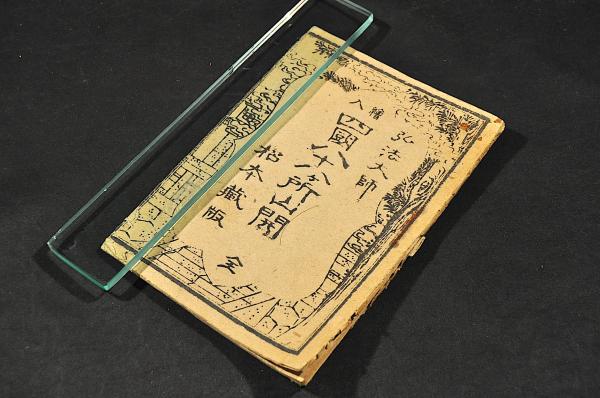 弘法大師
繪入
四國八十八ヶ所山開
松本藏版
全